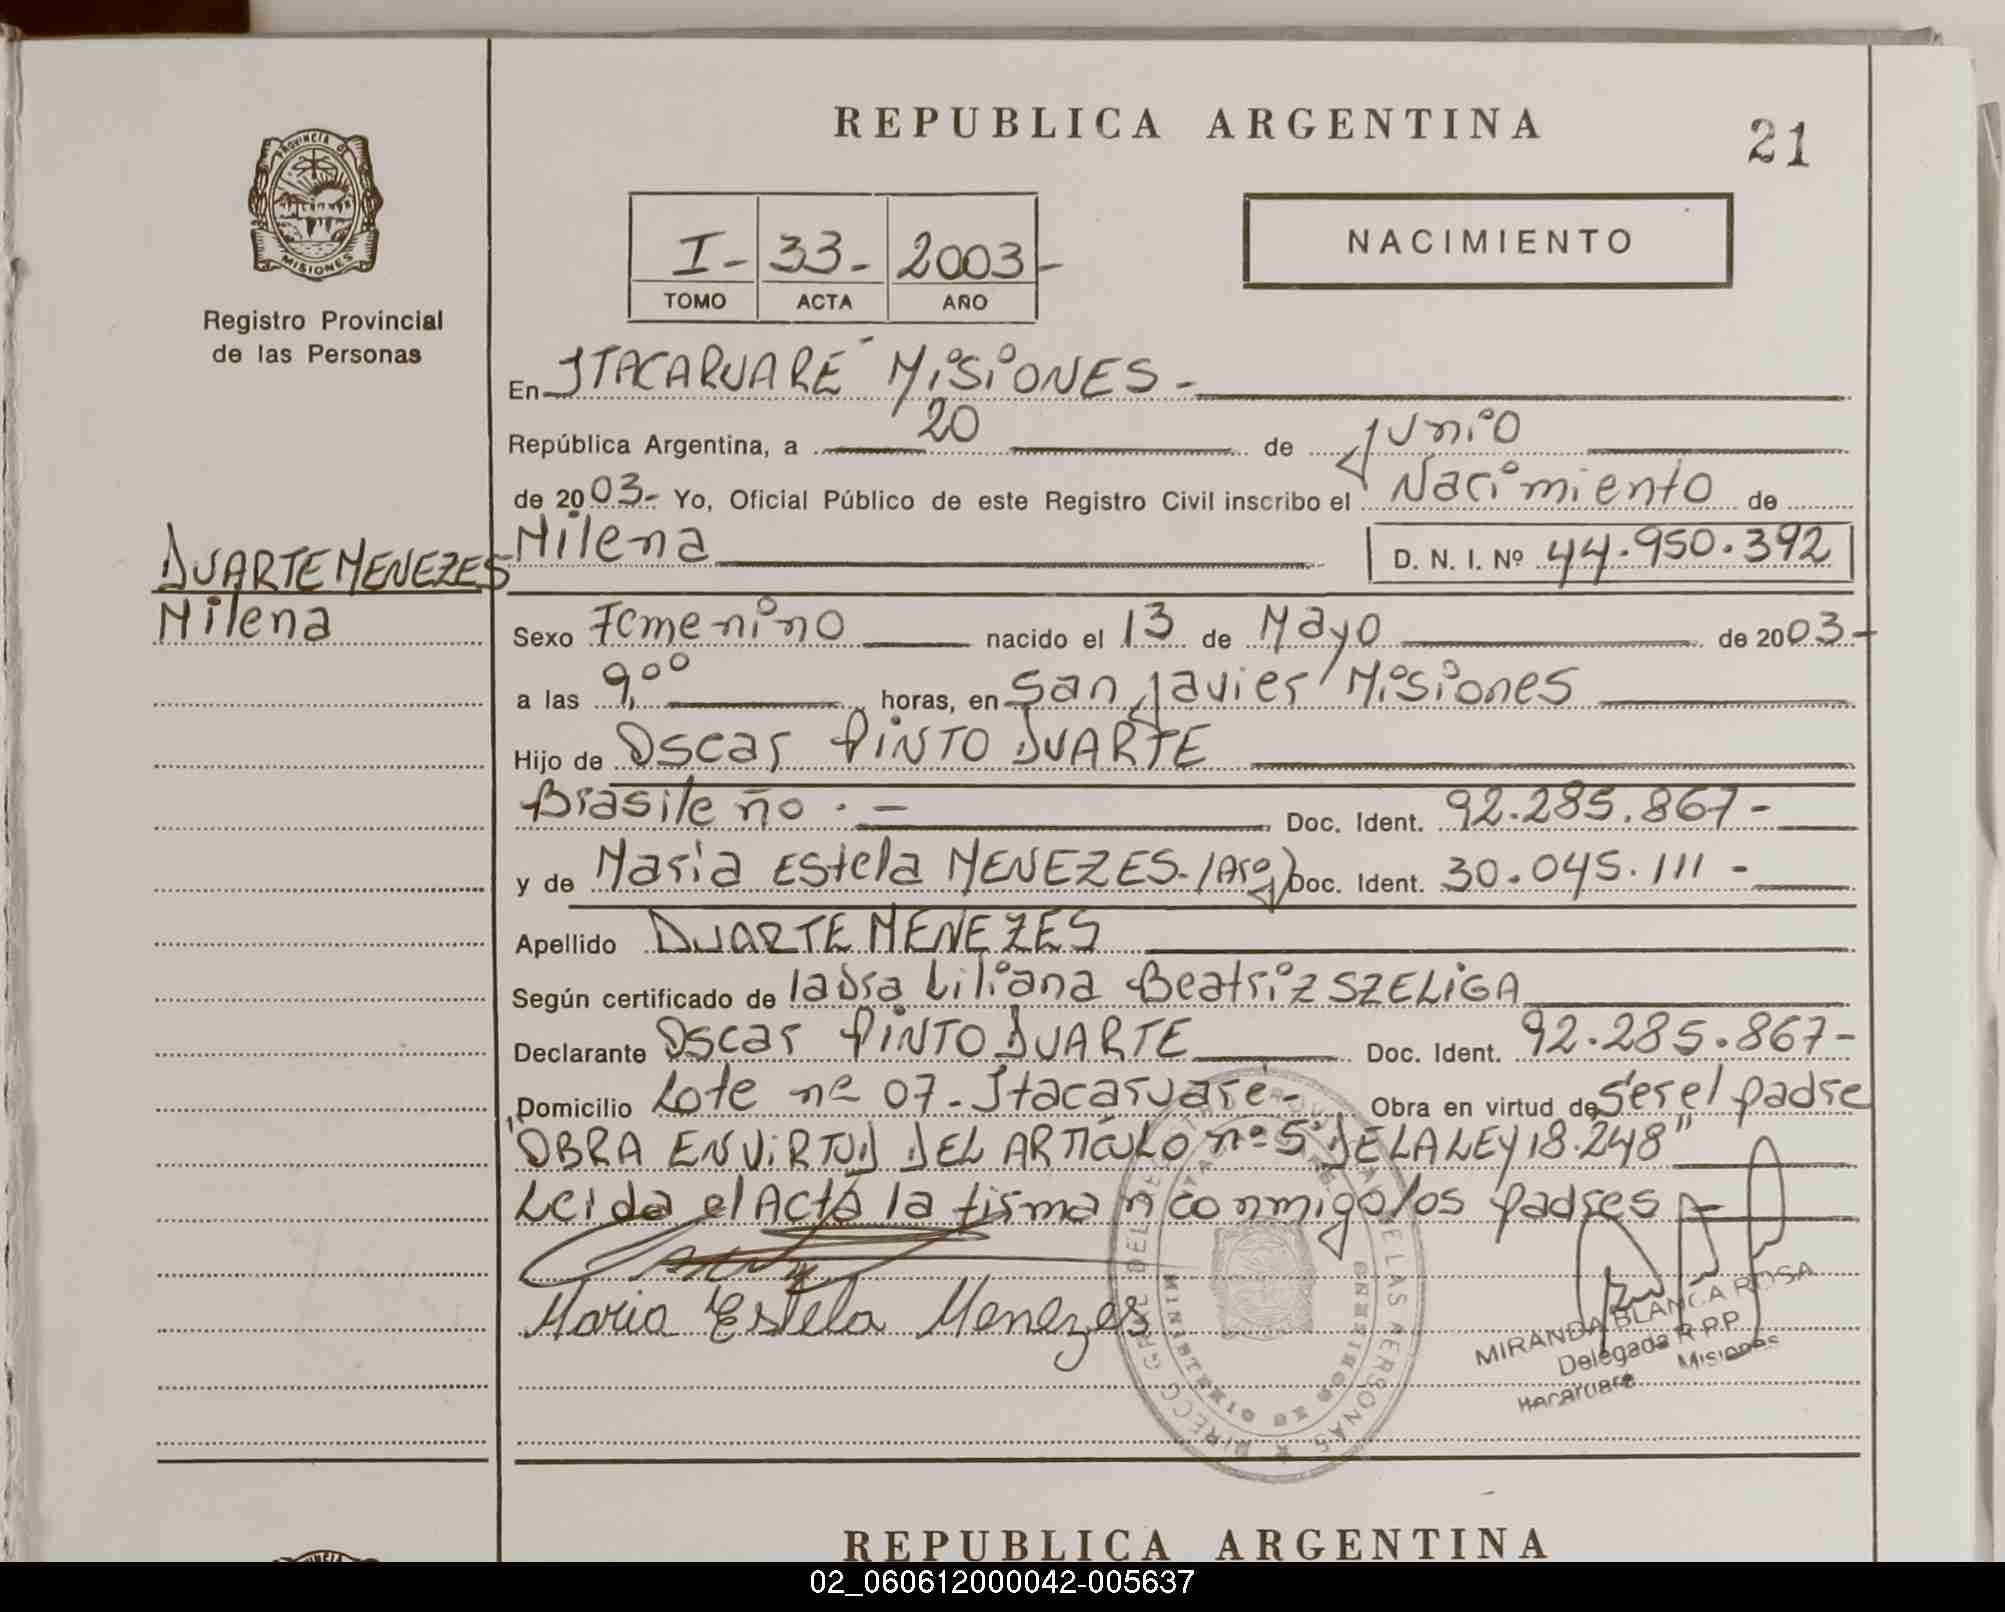 REPUBLICA ARGENTINA
21
PROVINCIA DE
MISIONES
Registro Provincial
de las Personas
I- 33- 2003-
TOMO ACTA AÑO
NACIMIENTO
En ITACARUARE MiSiONES-
República Argentina, a 20 de Junio
de 2003- Yo, Oficial Público de este Registro Civil inscribo el Nacimiento de
Milena D. N. I. Nº 44.950.392
DUARTE MENEZES
Milena
Sexo Femenino nacido el 13 de Mayo de 2003-
a las 9,00 horas, en San Javier Misiones
Hijo de Oscar PiNTO DUARTE
Brasileño.- Doc. Ident. 92.285.867-
y de Maria Estela MENEZES-(Arg) Doc. Ident. 30.045.111-
Apellido DUARTE MENEZES
Según certificado de la Dra Liliana Beatriz SZELiGA
Declarante Oscar PiNTO DUARTE Doc. Ident. 92.285.867-
Domicilio Lote nº 07-Itacaruare- Obra en virtud de ser el padre
"OBRA EN ViRTUD DEL ARTiCULO nº 5º DE LA LEY 18.248"
Leida el Acta la firman conmigo los padres-
Maria Estela Menezes
MIRANDA BLANCA ROSA
Delegada R.P.P
Itacaruare Misiones
REPUBLICA ARGENTINA
02_060612000042-005637